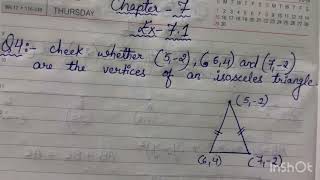 THURSDAY
Chapter - 7
Ex - 7.1
Q4:- cheek whether (5,-2), (6,4) and (7,-2)
are the vertices of an isosceles triangle
(5,-2)
(6,4) (7,-2)
InShot